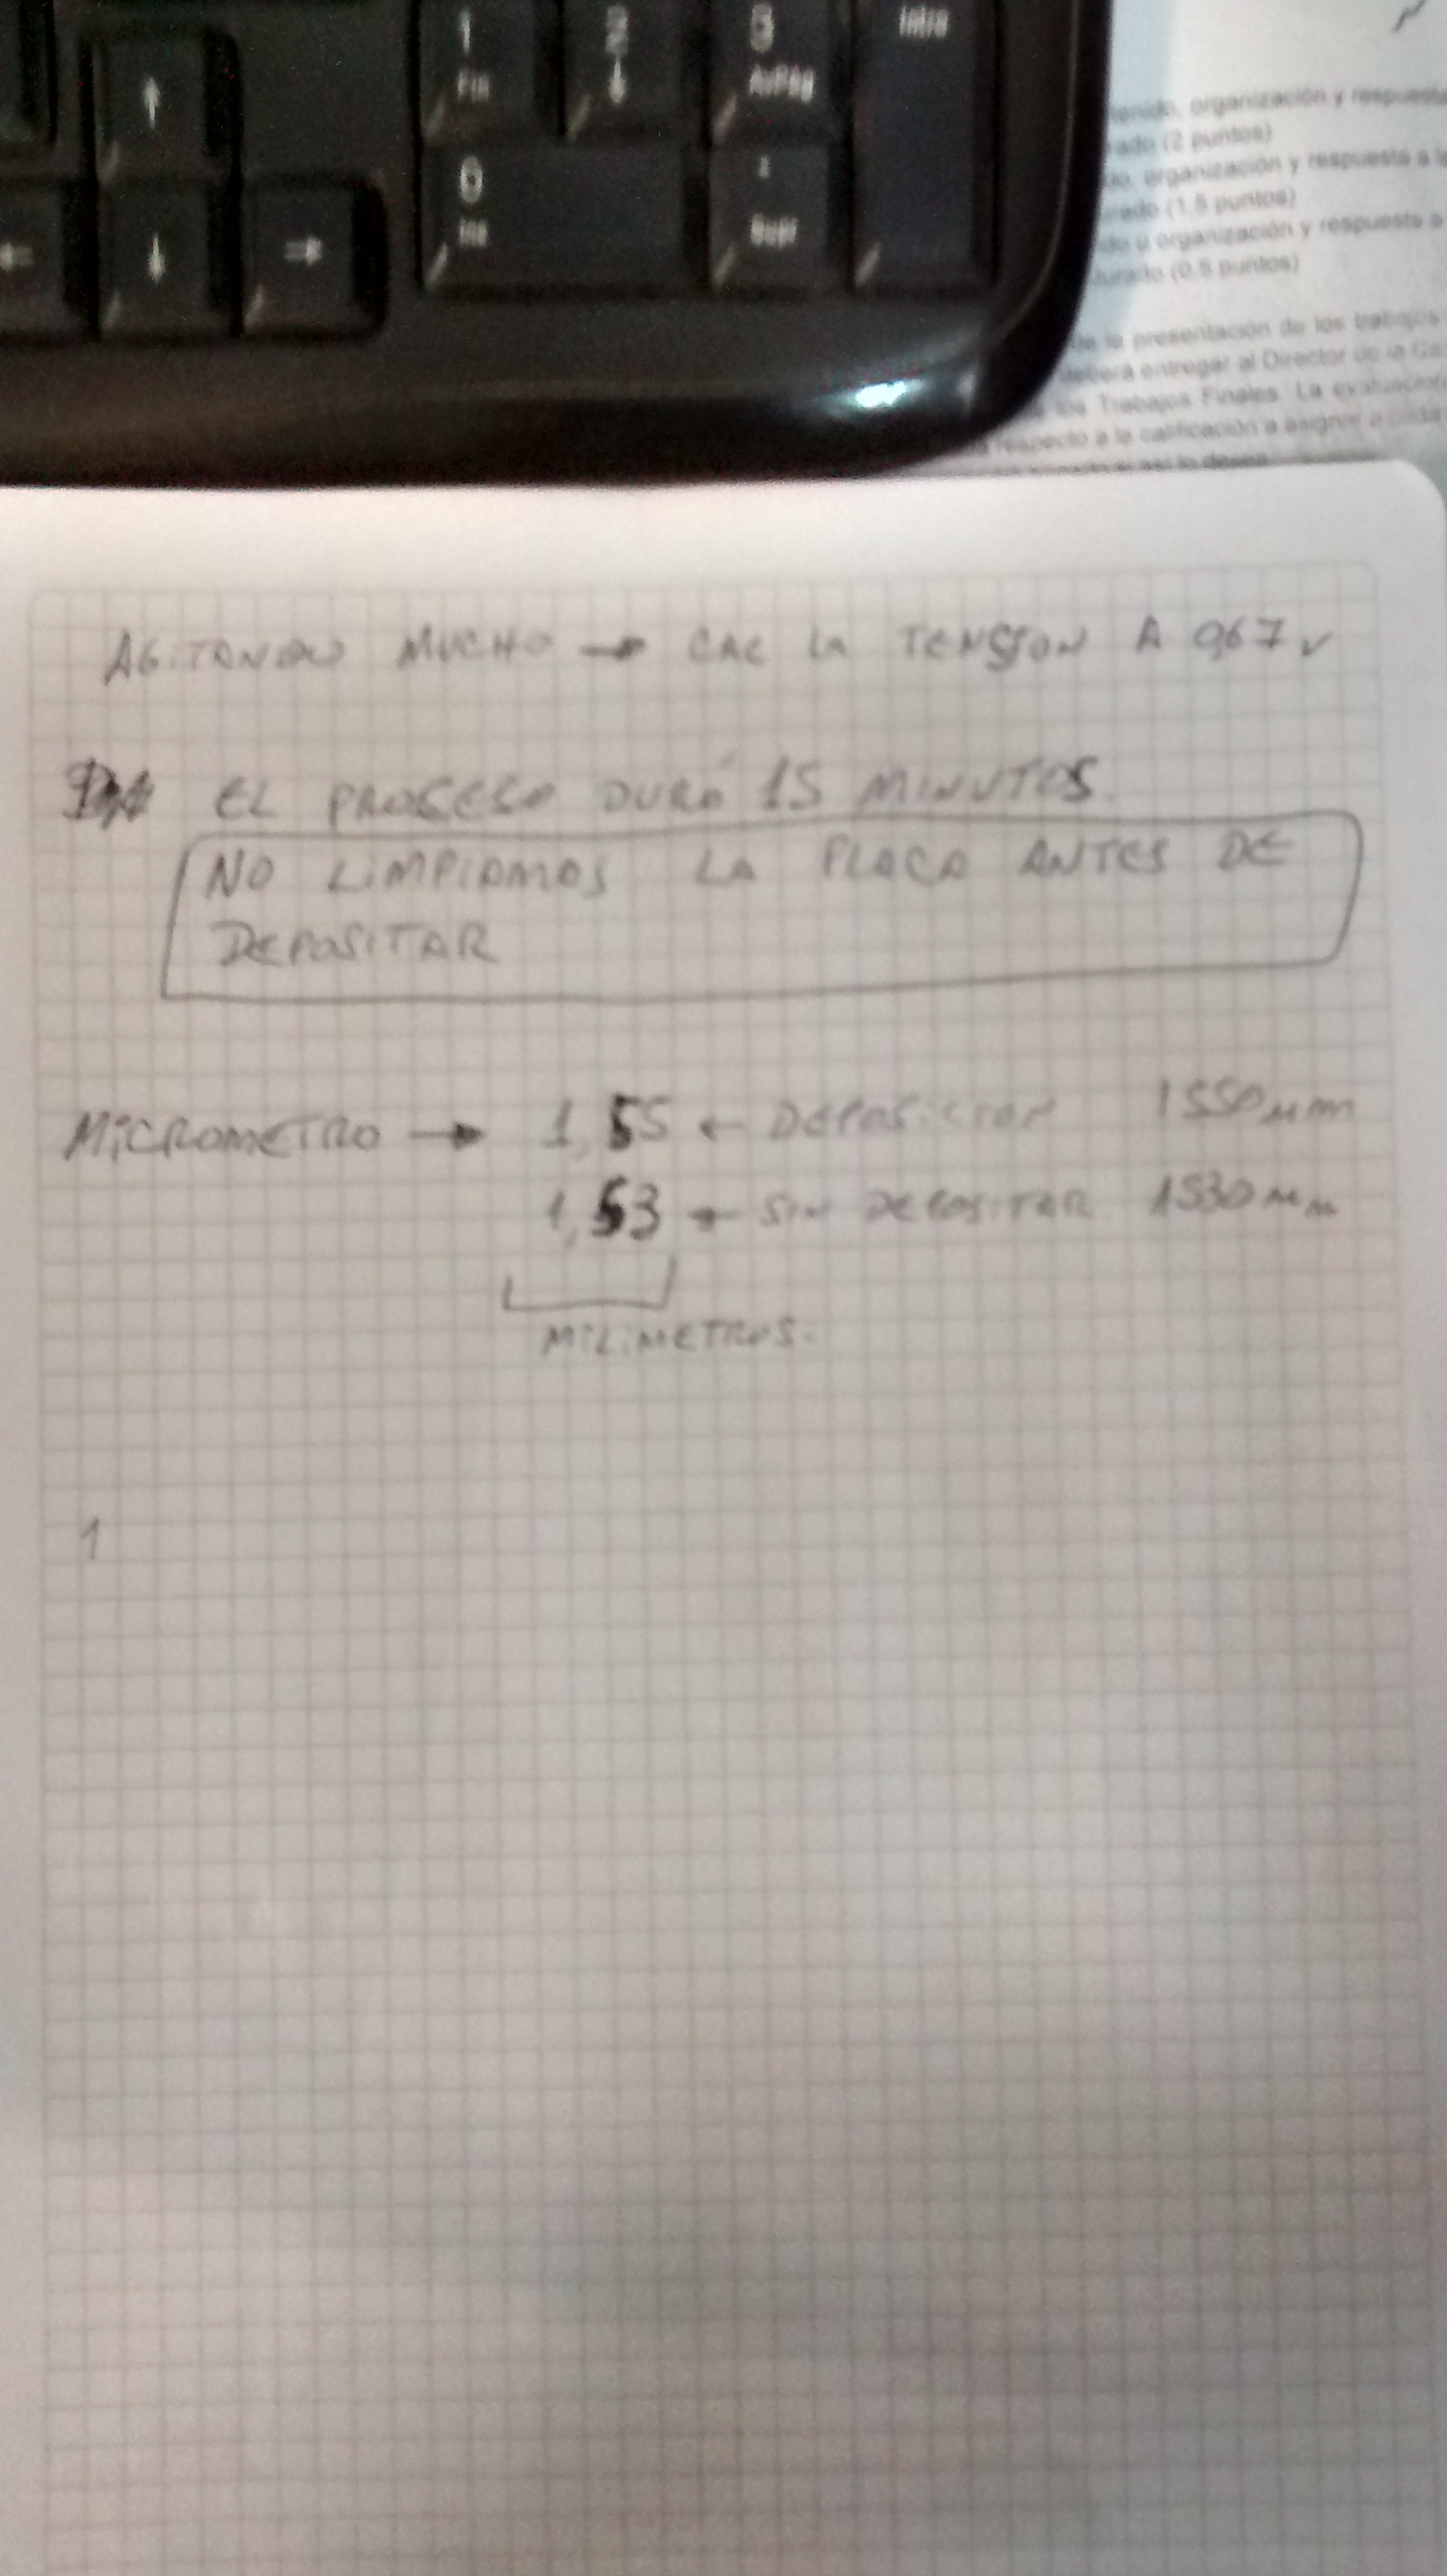 1
Fin
2
3
AvPág
Intro
0
Ins
.
Supr
organización y respuesta
(2 puntos)
organización y respuesta a
(1.5 puntos)
organización y respuesta a
(0.5 puntos)
la presentación de los trabajos
deberá entregar al Director de la
Trabajos Finales. La evaluación
respecto a la calificación a asignar a cada
AGITANDO MUCHO → CAE LA TENSION A 0,67 V
EL PROCESO DURÓ 15 MINUTOS.
NO LIMPIAMOS LA PLACA ANTES DE
DEPOSITAR
MICROMETRO → 1,55 ← DEPOSICION 1550 µm
1,53 ← SIN DEPOSITAR. 1530 µm
MILIMETROS.
1